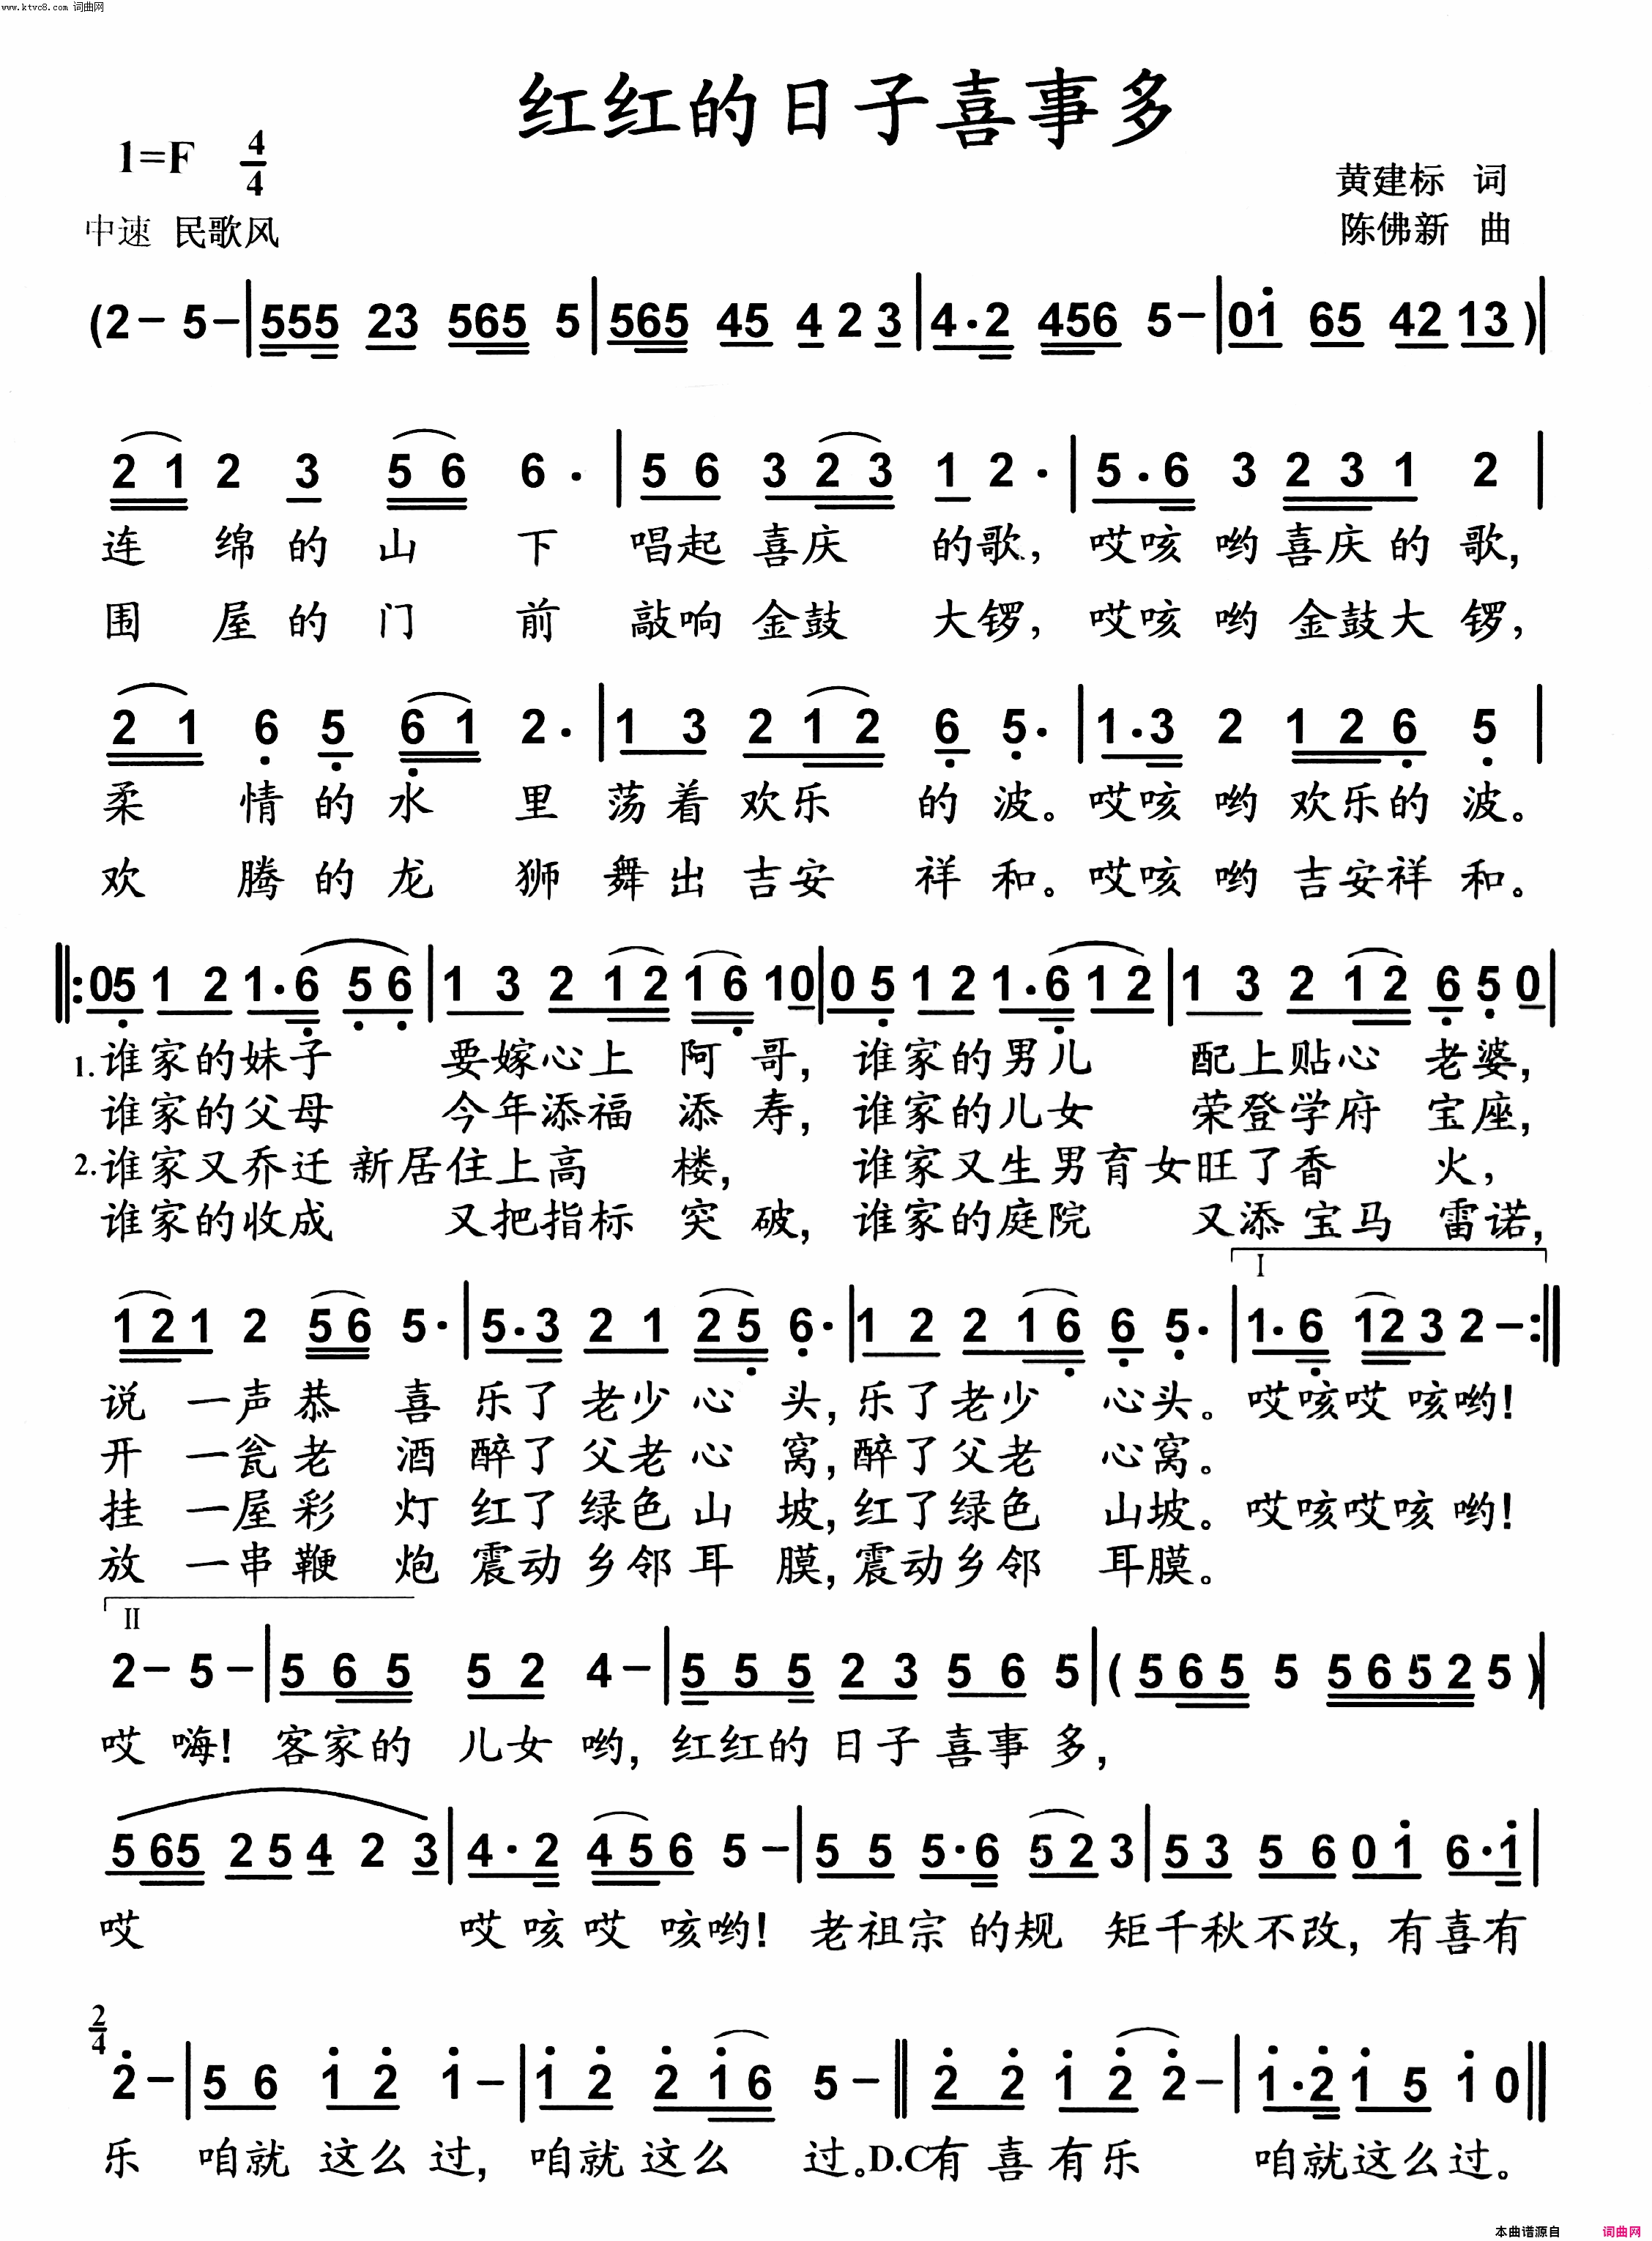 www.ktvc8.com 词曲网
红红的日子喜事多
1=F 4/4
黄建标 词
中速 民歌风
陈佛新 曲
(2− 5−|555 23 565 5|565 45 4 2 3|4·2 456 5−|0i 65 42 13)|
2 1 2 3 5 6 6·|5 6 3 2 3 1 2·|5·6 3 2 3 1 2|
连绵的山下 唱起喜庆的歌,哎咳哟喜庆的歌,
围屋的门前 敲响金鼓大锣,哎咳哟金鼓大锣,
2 1 6 5 6 1 2·|1 3 2 1 2 6 5·|1·3 2 1 2 6 5|
柔情的水里荡着欢乐的波。哎咳哟欢乐的波。
欢腾的龙狮舞出吉安祥和。哎咳哟吉安祥和。
‖:05 1 2 1·6 5 6|1 3 2 1 2 1 6 10|0 5 1 2 1·6 1 2|1 3 2 1 2 6 5 0|
1.谁家的妹子 要嫁心上阿哥,谁家的男儿 配上贴心老婆,
谁家的父母 今年添福添寿,谁家的儿女 荣登学府宝座,
2.谁家又乔迁新居住上高楼,谁家又生男育女旺了香火,
谁家的收成 又把指标突破,谁家的庭院 又添宝马雷诺,
I
1 2 1 2 5 6 5·|5·3 2 1 2 5 6·|1 2 2 1 6 6 5·|1·6 12 3 2−:‖
说一声恭喜乐了老少心头,乐了老少心头。哎咳哎咳哟!
开一瓮老酒醉了父老心窝,醉了父老心窝。
挂一屋彩灯红了绿色山坡,红了绿色山坡。哎咳哎咳哟!
放一串鞭炮震动乡邻耳膜,震动乡邻耳膜。
II
2− 5−|5 6 5 5 2 4−|5 5 5 2 3 5 6 5|(5 6 5 5 5 6 5 2 5)|
哎嗨!客家的儿女哟,红红的日子喜事多,
5 65 2 5 4 2 3|4·2 4 5 6 5−|5 5 5·6 5 2 3|5 3 5 6 0 i 6·i|
哎 哎咳哎咳哟!老祖宗的规矩千秋不改,有喜有
2/4
2−|5 6 1 2 1−|1 2 2 1 6 5−‖2 2 1 2 2−|1·2 1 5 1 0‖
乐 咱就这么过,咱就这么过。D.C有喜有乐 咱就这么过。
本曲谱源自 词曲网